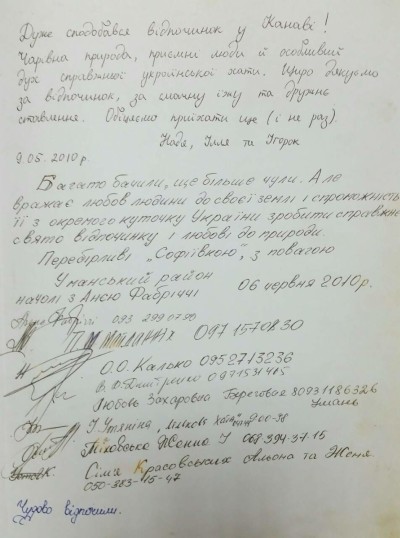 Дуже сподобався відпочинок у Каневі!
Чарівна природа, приємні люди й особливий
дух справжньої української хати. Щиро дякуємо
за відпочинок, за смачну їжу та дружнє
ставлення. Обіцяємо приїхати ще (і не раз).
Надя, Ілля та Ігорок
9.05.2010р.
Багато бачили, ще більше чули. Але
вражає любов людини до своєї землі і спроможність
її з окремого куточку України зробити справжнє
свято відпочинку і любові до природи.
Перебірливі "Софіївкою", з повагою
Уманський район
на чолі з Анею Фабріччі 06 червня 2010р.
Фабріччі 093 299 07 90
097 1570830
О.О. Калько 0952713236
0971531415
Любовь Захаровна Береговая 80931186326
Умань
І. Утяніна,
Жанна 068 394-37-15
Сім'я Красовських Альона та Женя.
050-383-15-47
Чудово відпочили.